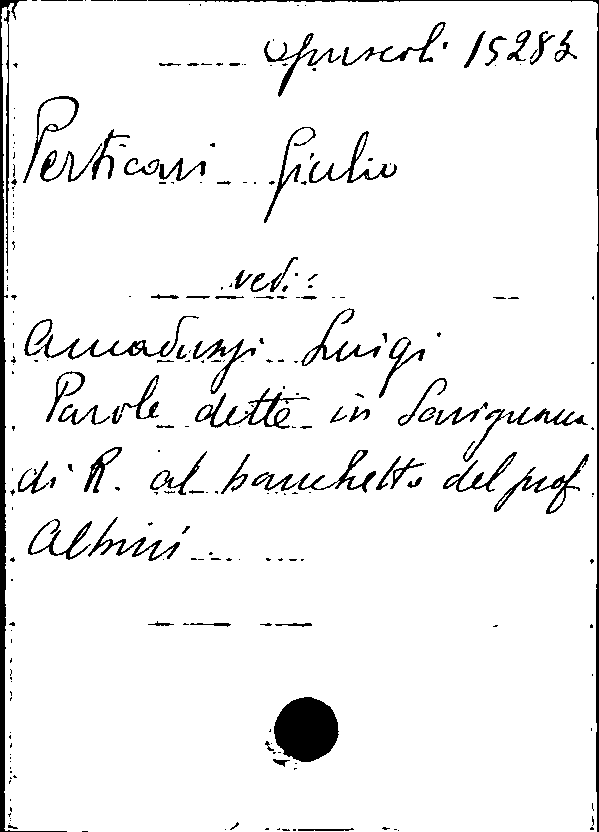 Opuscoli 15283
Perticari Giulio
vedi:
Amaduzzi Luigi
Parole dette in Savignano
di R. al banchetto del prof
Albini